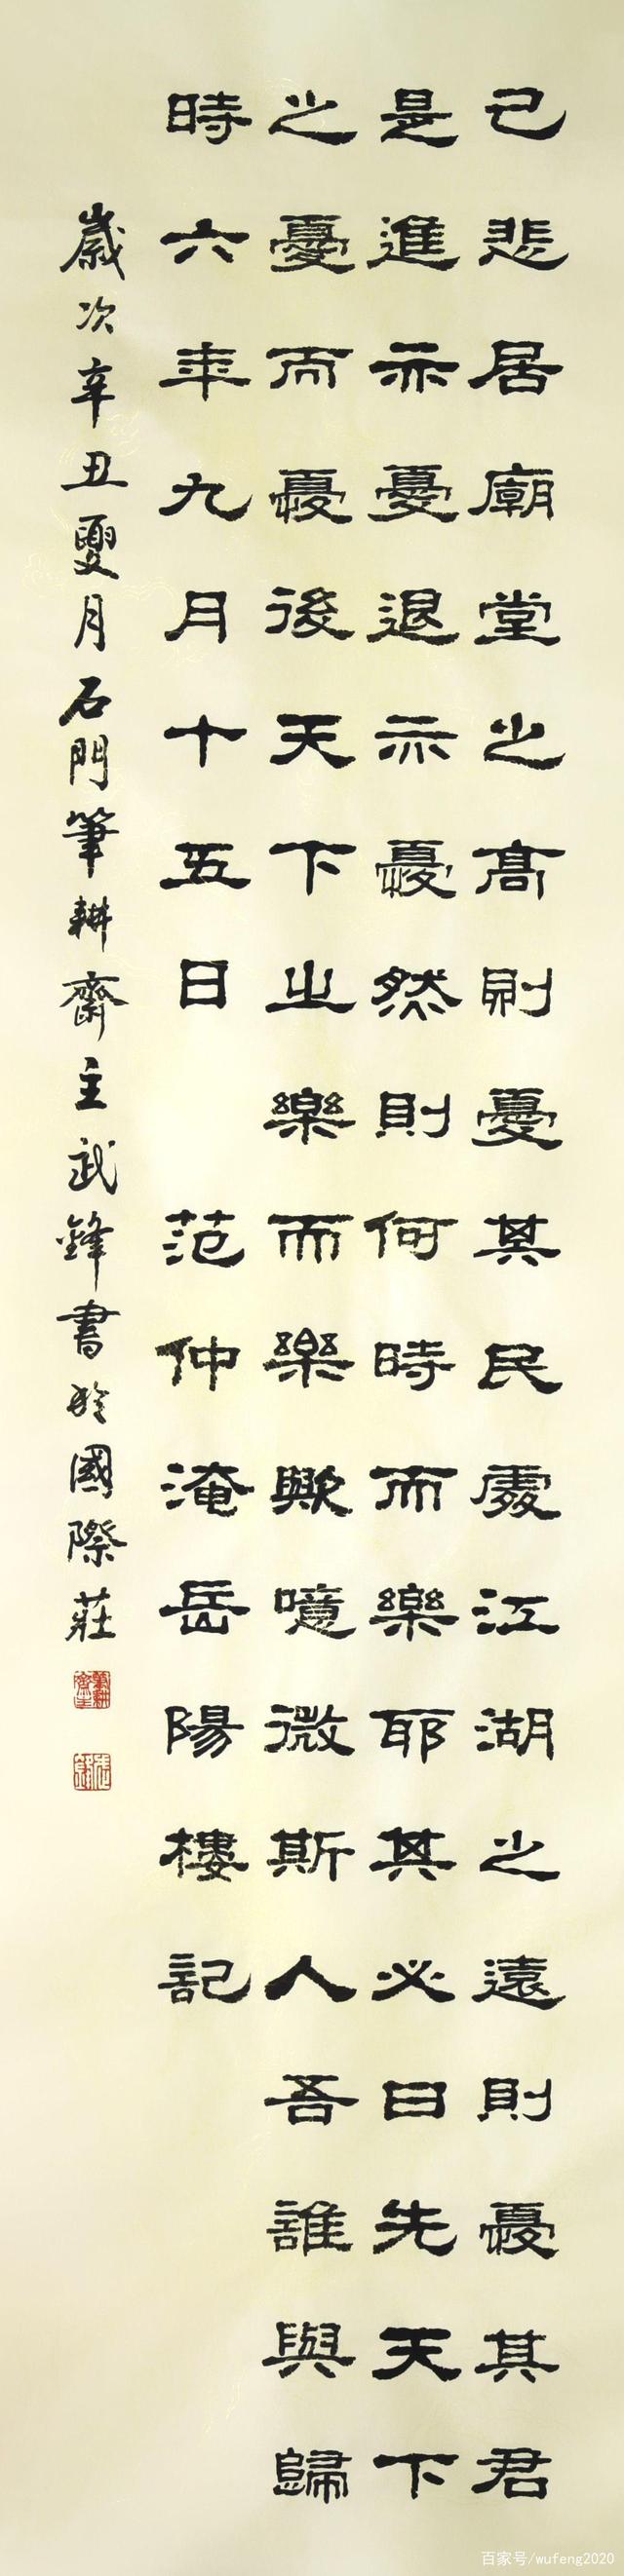 己悲居廟堂之高則憂其民處江湖之遠則憂其君
是進亦憂退亦憂然則何時而樂耶其必曰先天下
之憂而憂後天下之樂而樂歟噫微斯人吾誰與歸
時六年九月十五日 范仲淹岳陽樓記
歲次辛丑夏月石門筆耕齋主武鋒書於國際莊
百家号/wufeng2020